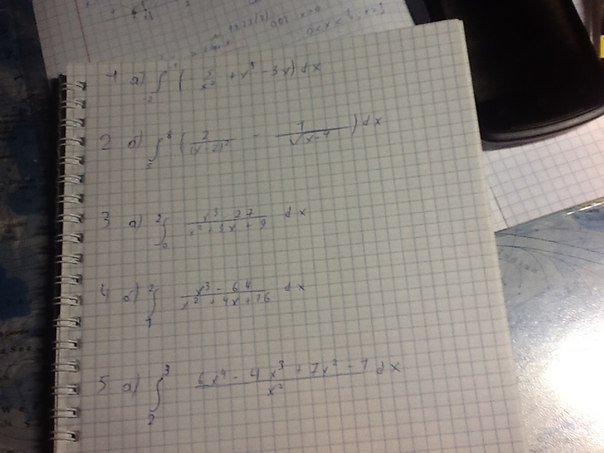 1 а) ∫ ( 5/x² + x⁴ - 3x) dx
2 б) ∫ ( 2/(x+2)² - 1/√(x-4) ) dx
3 а) ∫₀² (x³ - 27)/(x² + 3x + 9) dx
4 б) ∫₁² (x³ - 64)/(x² + 4x + 16) dx
5 а) ∫₂³ (6x⁴ - 4x³ + 7x² - 1)/x² dx